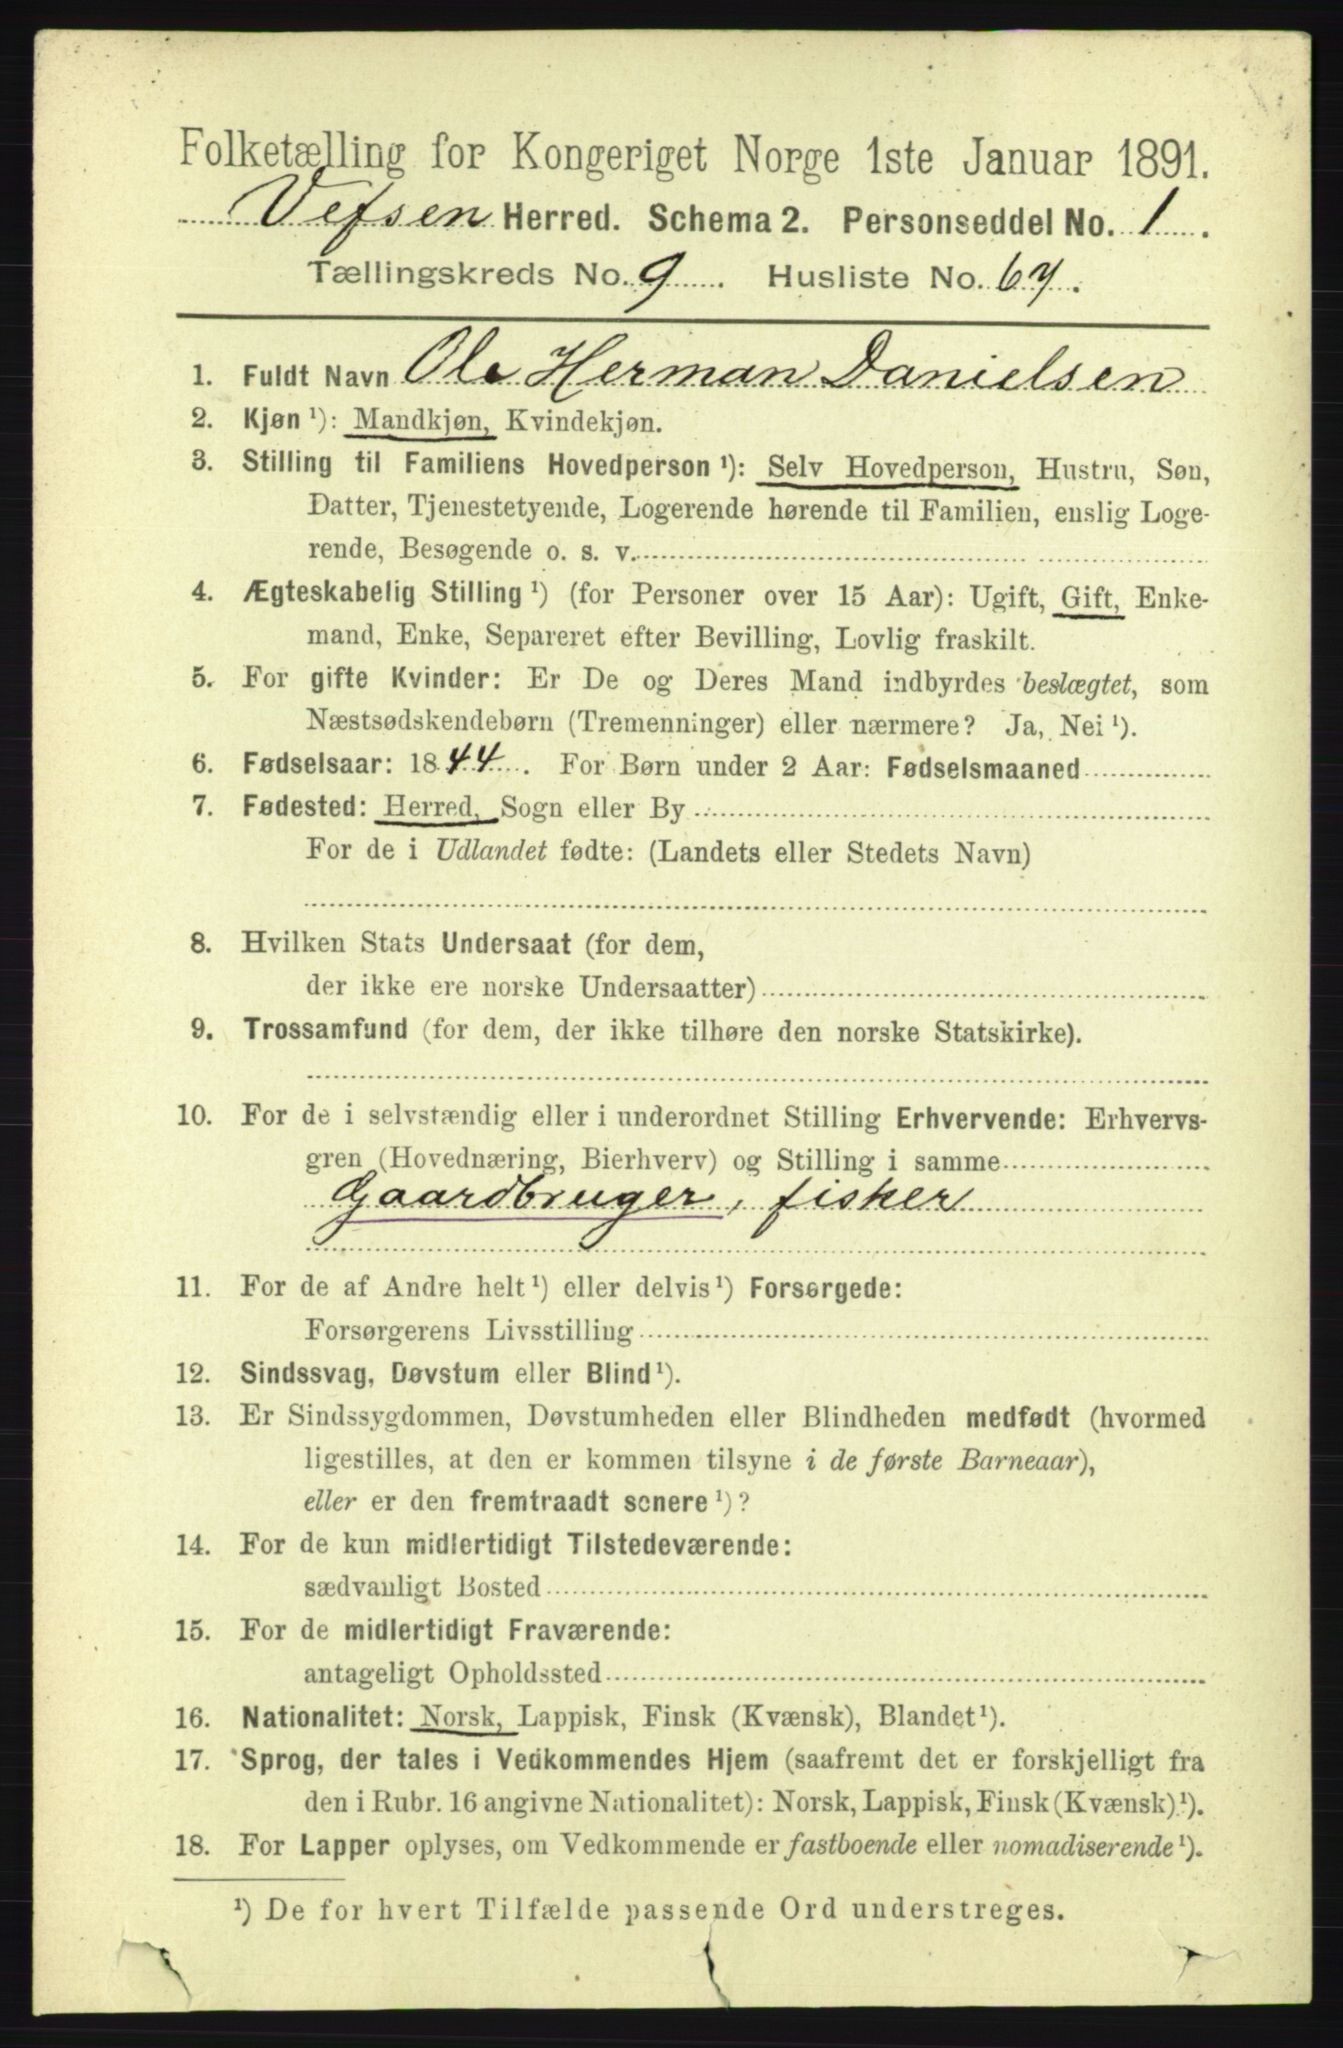 Folketælling for Kongeriget Norge 1ste Januar 1891.
Vefsen Herred. Schema 2. Personseddel No. 1.
Tællingskreds No. 9. Husliste No. 67.
1. Fuldt Navn Ole Herman Danielsen
2. Kjøn ¹): Mandkjøn, Kvindekjøn.
3. Stilling til Familiens Hovedperson ¹): Selv Hovedperson, Hustru, Søn,
Datter, Tjenestetyende, Logerende hørende til Familien, enslig Loge-
rende, Besøgende o. s. v.
4. Ægteskabelig Stilling ¹) (for Personer over 15 Aar): Ugift, Gift, Enke-
mand, Enke, Separeret efter Bevilling, Lovlig fraskilt.
5. For gifte Kvinder: Er De og Deres Mand indbyrdes beslægtet, som
Næstsødskendebørn (Tremenninger) eller nærmere? Ja, Nei ¹).
6. Fødselsaar: 1844. For Børn under 2 Aar: Fødselsmaaned
7. Fødested: Herred, Sogn eller By
For de i Udlandet fødte: (Landets eller Stedets Navn)
8. Hvilken Stats Undersaat (for dem,
der ikke ere norske Undersaatter)
9. Trossamfund (for dem, der ikke tilhøre den norske Statskirke).
10. For de i selvstændig eller i underordnet Stilling Erhvervende: Erhvervs-
gren (Hovednæring, Bierhverv) og Stilling i samme
Gaardbruger, fisker
11. For de af Andre helt ¹) eller delvis ¹) Forsørgede:
Forsørgerens Livsstilling
12. Sindssvag, Døvstum eller Blind ¹).
13. Er Sindssygdommen, Døvstumheden eller Blindheden medfødt (hvormed
ligestilles, at den er kommen tilsyne i de første Barneaar),
eller er den fremtraadt senere ¹)?
14. For de kun midlertidigt Tilstedeværende:
sædvanligt Bosted
15. For de midlertidigt Fraværende:
antageligt Opholdssted
16. Nationalitet: Norsk, Lappisk, Finsk (Kvænsk), Blandet ¹).
17. Sprog, der tales i Vedkommendes Hjem (saafremt det er forskjelligt fra
den i Rubr. 16 angivne Nationalitet): Norsk, Lappisk, Finsk (Kvænsk) ¹).
18. For Lapper oplyses, om Vedkommende er fastboende eller nomadiserende ¹).
¹) De for hvert Tilfælde passende Ord understreges.